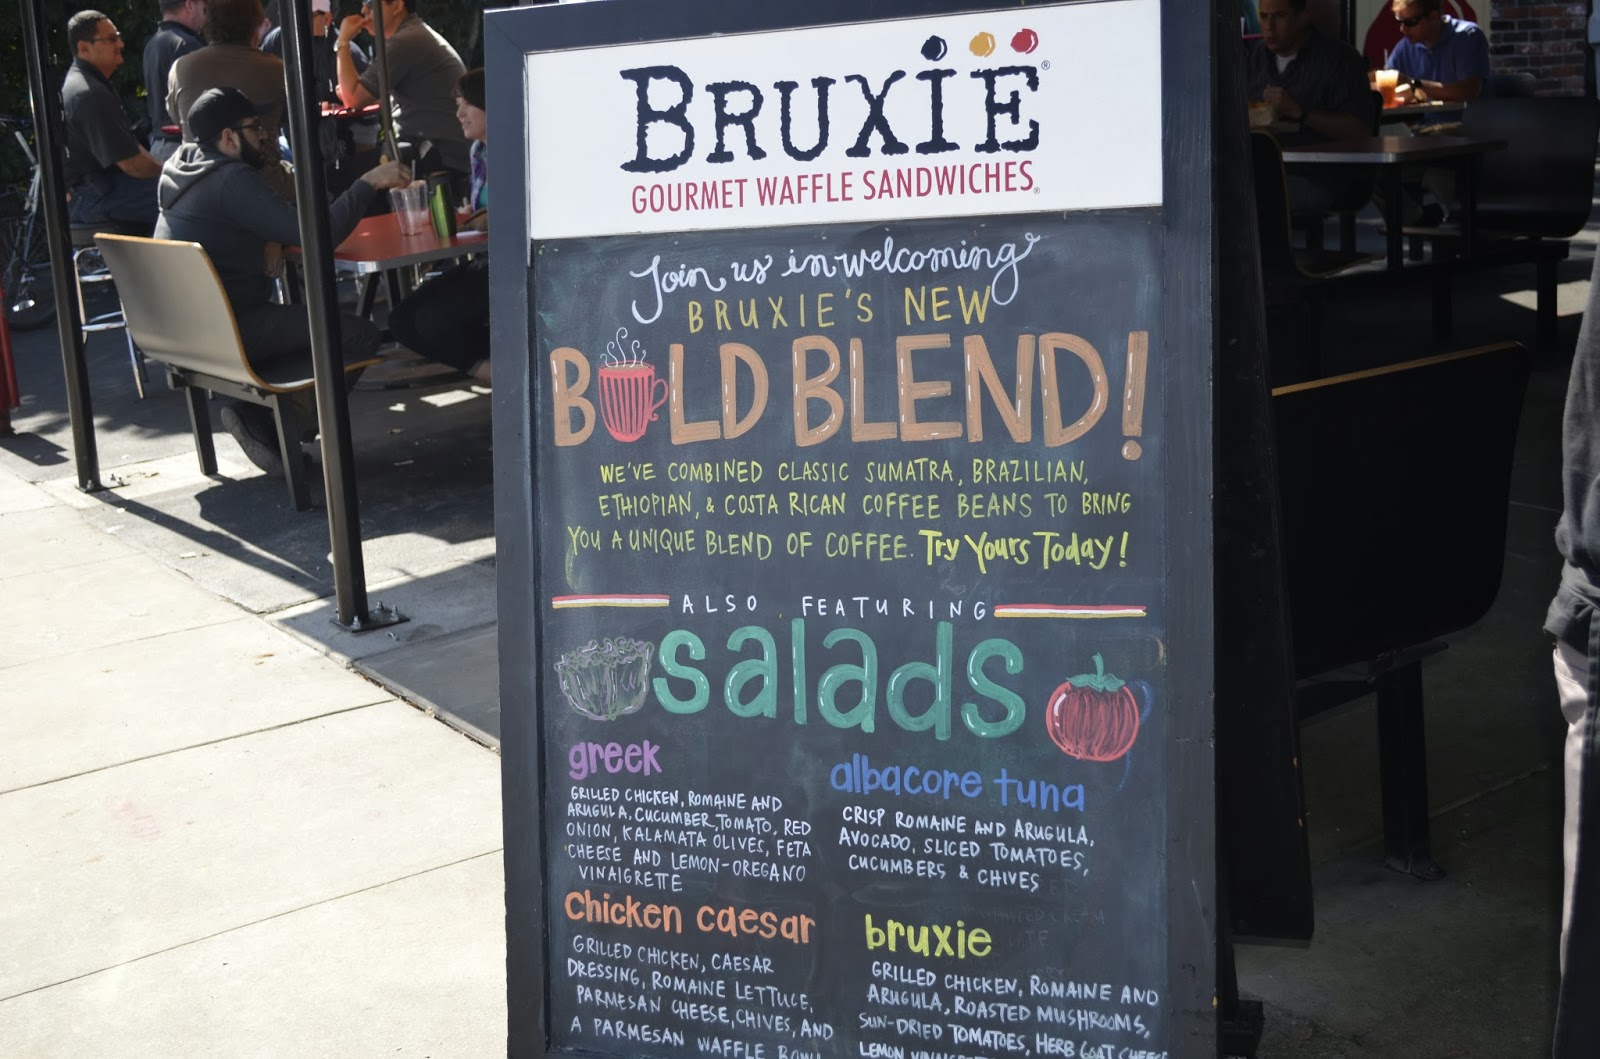 BRUXIE®
GOURMET WAFFLE SANDWICHES®
Join us in welcoming
BRUXIE'S NEW
BOLD BLEND!
WE'VE COMBINED CLASSIC SUMATRA, BRAZILIAN,
ETHIOPIAN, & COSTA RICAN COFFEE BEANS TO BRING
YOU A UNIQUE BLEND OF COFFEE. Try Yours Today!
ALSO FEATURING
salads
greek
GRILLED CHICKEN, ROMAINE AND
ARUGULA, CUCUMBER, TOMATO, RED
ONION, KALAMATA OLIVES, FETA
CHEESE AND LEMON-OREGANO
VINAIGRETTE
albacore tuna
CRISP ROMAINE AND ARUGULA,
AVOCADO, SLICED TOMATOES,
CUCUMBERS & CHIVES
chicken caesar
GRILLED CHICKEN, CAESAR
DRESSING, ROMAINE LETTUCE,
PARMESAN CHEESE, CHIVES, AND
A PARMESAN WAFFLE BOWL
bruxie
GRILLED CHICKEN, ROMAINE AND
ARUGULA, ROASTED MUSHROOMS,
SUN-DRIED TOMATOES, HERB GOAT CHEESE
LEMON